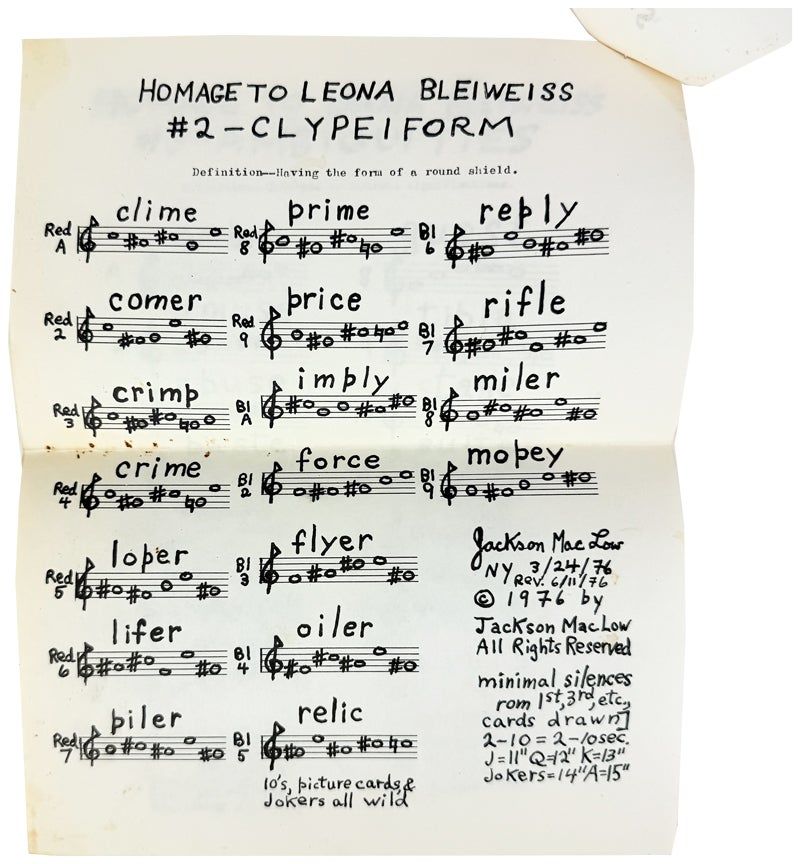 HOMAGE TO LEONA BLEIWEISS
#2 - CLYPEIFORM
Definition--Having the form of a round shield.
Red A clime
Red 2 comer
Red 3 crimp
Red 4 crime
Red 5 loper
Red 6 lifer
Red 7 piler
Red 8 prime
Red 9 price
Bl A imply
Bl 2 force
Bl 3 flyer
Bl 4 oiler
Bl 5 relic
10's, picture cards &
Jokers all wild
Bl 6 reply
Bl 7 rifle
Bl 8 miler
Bl 9 mopey
Jackson Mac Low
NY 3/24/76
Rev. 6/11/76
© 1976 by
Jackson Mac Low
All Rights Reserved
minimal silences
rom 1st, 3rd, etc.,
cards drawn]
2-10 = 2-10 sec.
J=11" Q=12" K=13"
Jokers=14" A=15"